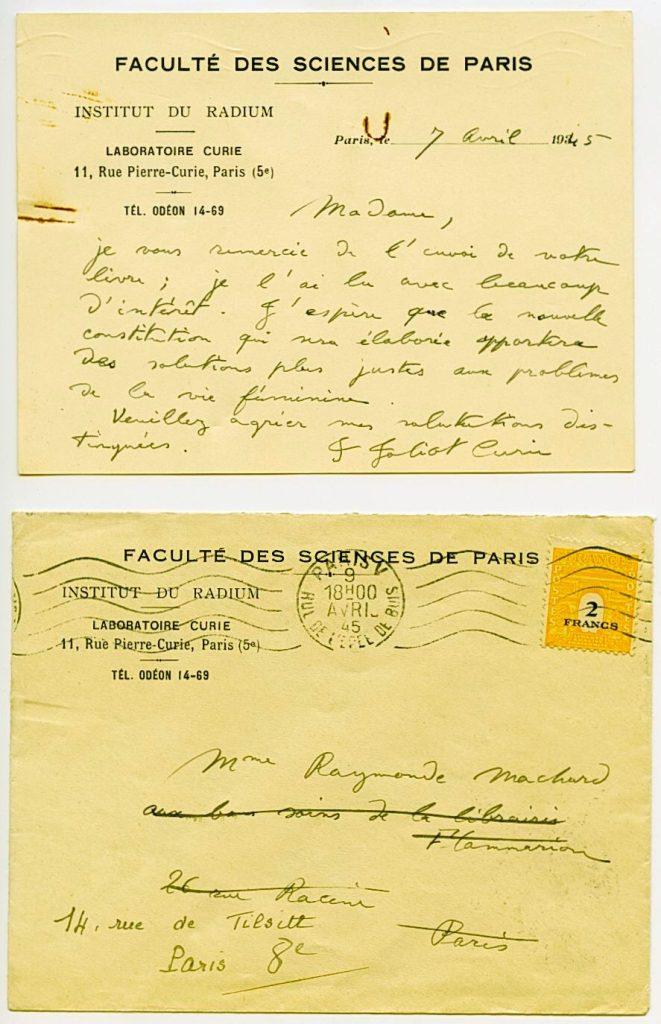 FACULTÉ DES SCIENCES DE PARIS
INSTITUT DU RADIUM
LABORATOIRE CURIE
11, Rue Pierre-Curie, Paris (5e)
TÉL. ODÉON 14-69
Paris, le 7 avril 1945
Madame,
je vous remercie de l'envoi de votre
livre ; je l'ai lu avec beaucoup
d'intérêt. J'espère que la nouvelle
constitution qui sera élaborée apportera
des solutions plus justes aux problèmes
de la vie féminine.
Veuillez agréer mes salutations dis-
tinguées.
I Joliot Curie
FACULTÉ DES SCIENCES DE PARIS
INSTITUT DU RADIUM
LABORATOIRE CURIE
11, Rue Pierre-Curie, Paris (5e)
TÉL. ODÉON 14-69
PARIS V
9
18H00
AVRIL
45
RUE DE L'EPEE DE BOIS
FRANCE
2
FRANCS
Mme Raymonde Machard
aux bons soins de la librairie
Flammarion
26 rue Racine
Paris
14, rue de Tilsitt
Paris 8e